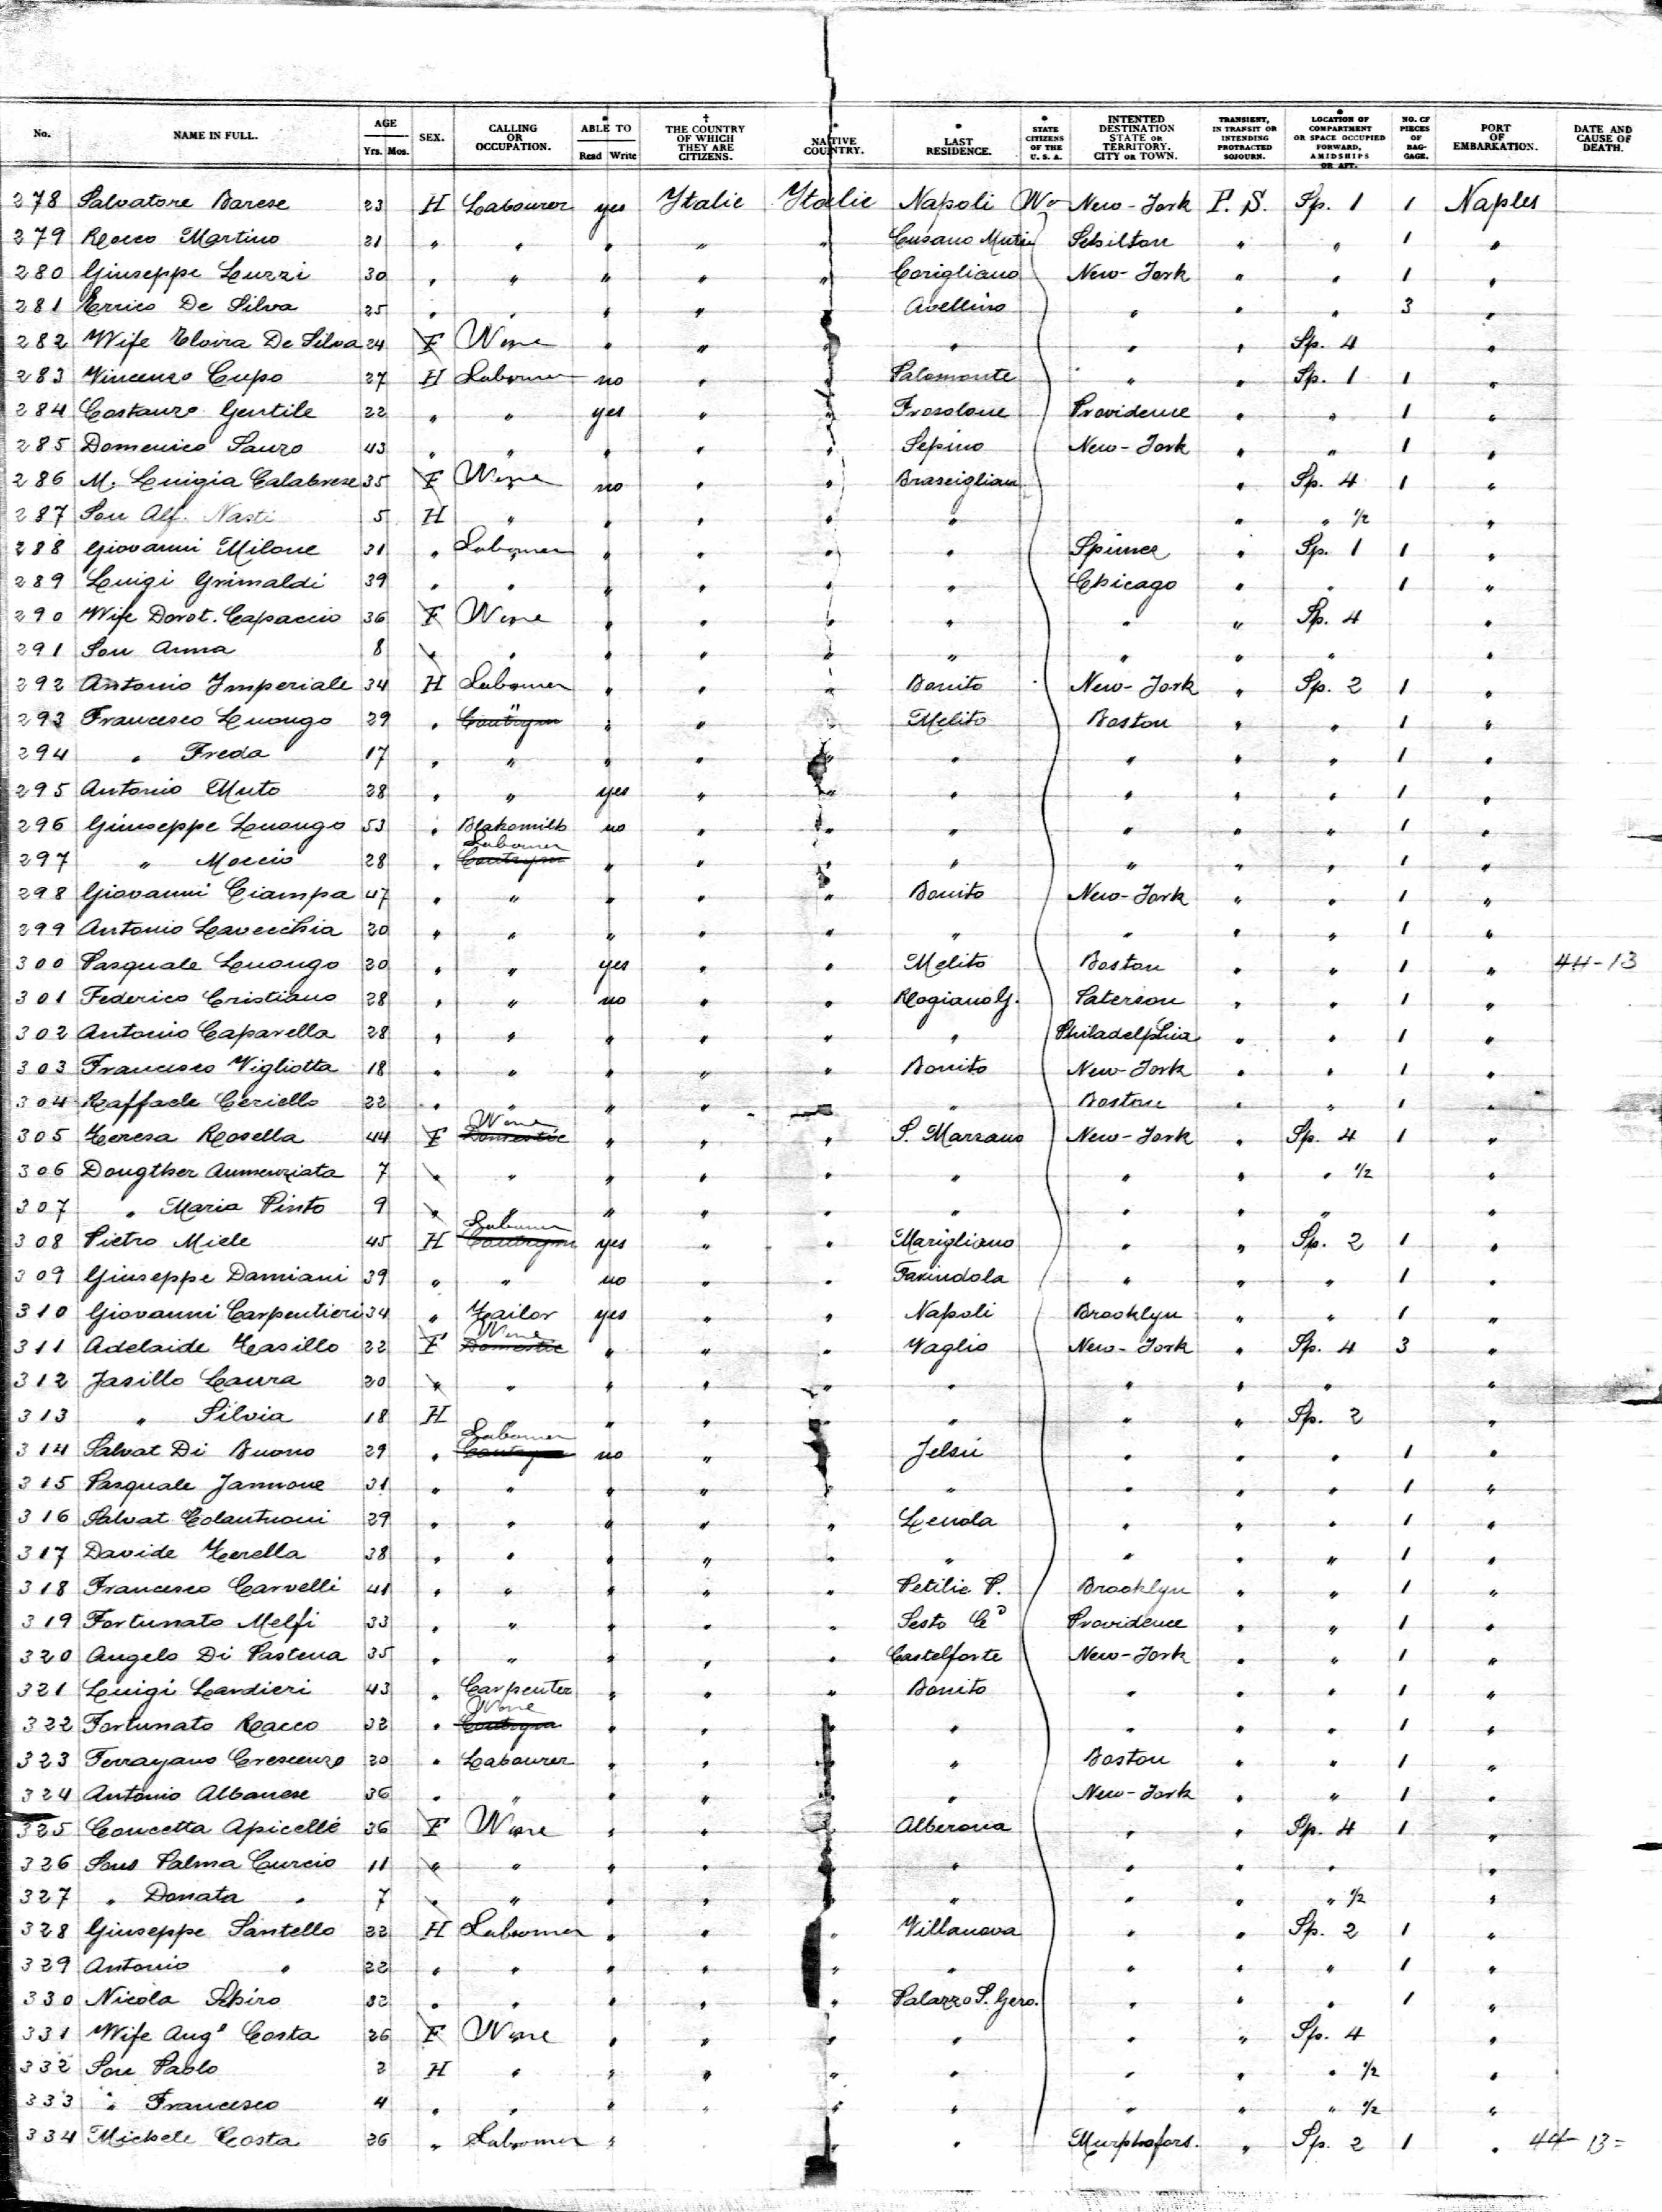 No. NAME IN FULL. AGE Yrs. Mos. SEX. CALLING OR OCCUPATION. ABLE TO Read Write THE COUNTRY OF WHICH THEY ARE CITIZENS. NATIVE COUNTRY. LAST RESIDENCE. STATE CITIZENS OF THE U. S. A. INTENTED DESTINATION STATE OR TERRITORY. CITY OR TOWN. TRANSIENT, IN TRANSIT OR INTENDING PROTRACTED SOJOURN. LOCATION OF COMPARTMENT OR SPACE OCCUPIED FORWARD, AMIDSHIPS OR AFT. NO. OF PIECES OF BAGGAGE. PORT OF EMBARKATION. DATE AND CAUSE OF DEATH.
278 Salvatore Barese 23 H Labourer yes Italie Italie Napoli No New-York P. S. Sp. 1 1 Naples
279 Rocco Martino 21 " " " " " Cusano Mutri " " 1 "
280 Giuseppe Luzzi 30 " " " " " Corigliano New-York " " 1 "
281 Errico De Silva 25 " " " " " Avellino " " " 3 "
282 Wife Elvira De Silva 24 F None " " " " " " Sp. 4 "
283 Vincenzo Cupo 27 H Labourer no " " Palomonte " " Sp. 1 1 "
284 Costanzo Gentile 22 " " yes " " Frosolone Providence " " 1 "
285 Domenico Sauro 43 " " " " " Sepino New-York " " 1 "
286 M. Luigia Calabrese 35 F None no " " Brascigliano " Sp. 4 1 "
287 Son Alf. Nasti 5 H " " " " " " " 1/2 "
288 Giovanni Milone 31 " Labourer " " " " " Sp. 1 1 "
289 Luigi Grimaldi 39 " " " " " " Chicago " " 1 "
290 Wife Dorot. Capaccio 36 F None " " " " " " Sp. 4 "
291 Son Anna 8 " " " " " " " " " "
292 Antonio Imperiale 34 H Labourer " " " Bonito New-York " Sp. 2 1 "
293 Francesco Luongo 29 " " " " " Melito Boston " " 1 "
294 " Freda 17 " " " " " " " " " 1 "
295 Antonio Muto 28 " " yes " " " " " " 1 "
296 Giuseppe Luongo 53 " Blakomith no " " " " " " 1 "
297 " Moccio 28 " Labourer " " " " " " " 1 "
298 Giovanni Ciampa 47 " " " " " Bonito New-York " " 1 "
299 Antonio Lavecchia 20 " " " " " " " " " 1 "
300 Pasquale Luongo 20 " " yes " " Melito Boston " " 1 " 44-13
301 Federico Cristiano 28 " " no " " Rogiano G. Paterson " " 1 "
302 Antonio Caparella 28 " " " " " " Philadelphia " " 1 "
303 Francesco Vigliotta 18 " " " " " Bonito New-York " " 1 "
304 Raffaele Ceriello 22 " " " " " " Boston " " 1 "
305 Teresa Rosella 44 F None Domestic " " " S. Marzano New-York " Sp. 4 1 "
306 Dougther Annunziata 7 " " " " " " " " " 1/2 "
307 " Maria Pinto 9 " " " " " " " " " "
308 Pietro Miele 45 H Labourer yes " " Marigliano " " Sp. 2 1 "
309 Giuseppe Damiani 39 " " no " " Farindola " " " 1 "
310 Giovanni Carpentieri 34 " Tailor yes " " Napoli Brooklyn " " 1 "
311 Adelaide Tasillo 22 F None Domestic " " " Vaglio New-York " Sp. 4 3 "
312 Jasillo Laura 20 " " " " " " " " " "
313 " Silvia 18 H " " " " " " " Sp. 2 "
314 Salvat Di Buono 29 " Labourer no " " Jelsi " " " 1 "
315 Pasquale Jannone 31 " " " " " " " " " 1 "
316 Salvat Colantuoni 29 " " " " " Lenola " " " 1 "
317 Davide Zerella 38 " " " " " " " " " 1 "
318 Francesco Carvelli 41 " " " " " Petilie P. Brooklyn " " 1 "
319 Fortunato Melfi 33 " " " " " Sesto Co Providence " " 1 "
320 Angelo Di Pastena 35 " " " " " Castelforte New-York " " 1 "
321 Luigi Lardieri 43 " Carpenter " " " Bonito " " " 1 "
322 Fortunato Racco 32 " None " " " " " " " 1 "
323 Ferrayano Crescenzo 20 " Labourer " " " " Boston " " 1 "
324 Antonio Albanese 36 " " " " " " New-York " " 1 "
325 Concetta Apicelle 36 F None " " " Alberona " " Sp. 4 1 "
326 Sons Palma Curcio 11 " " " " " " " " " "
327 " Donata " 7 " " " " " " " " " 1/2 "
328 Giuseppe Santello 22 H Labourer " " " Villanova " " Sp. 2 1 "
329 Antonio " 22 " " " " " " " " " 1 "
330 Nicola Schiro 32 " " " " " Palazzo S. Gero. " " " 1 "
331 Wife Augª Costa 26 F None " " " " " " Sp. 4 "
332 Son Paolo 2 H " " " " " " " " 1/2 "
333 " Francesco 4 " " " " " " " " " 1/2 "
334 Michele Costa 26 " Labourer " " " Sp. 2 1 " 44-13=